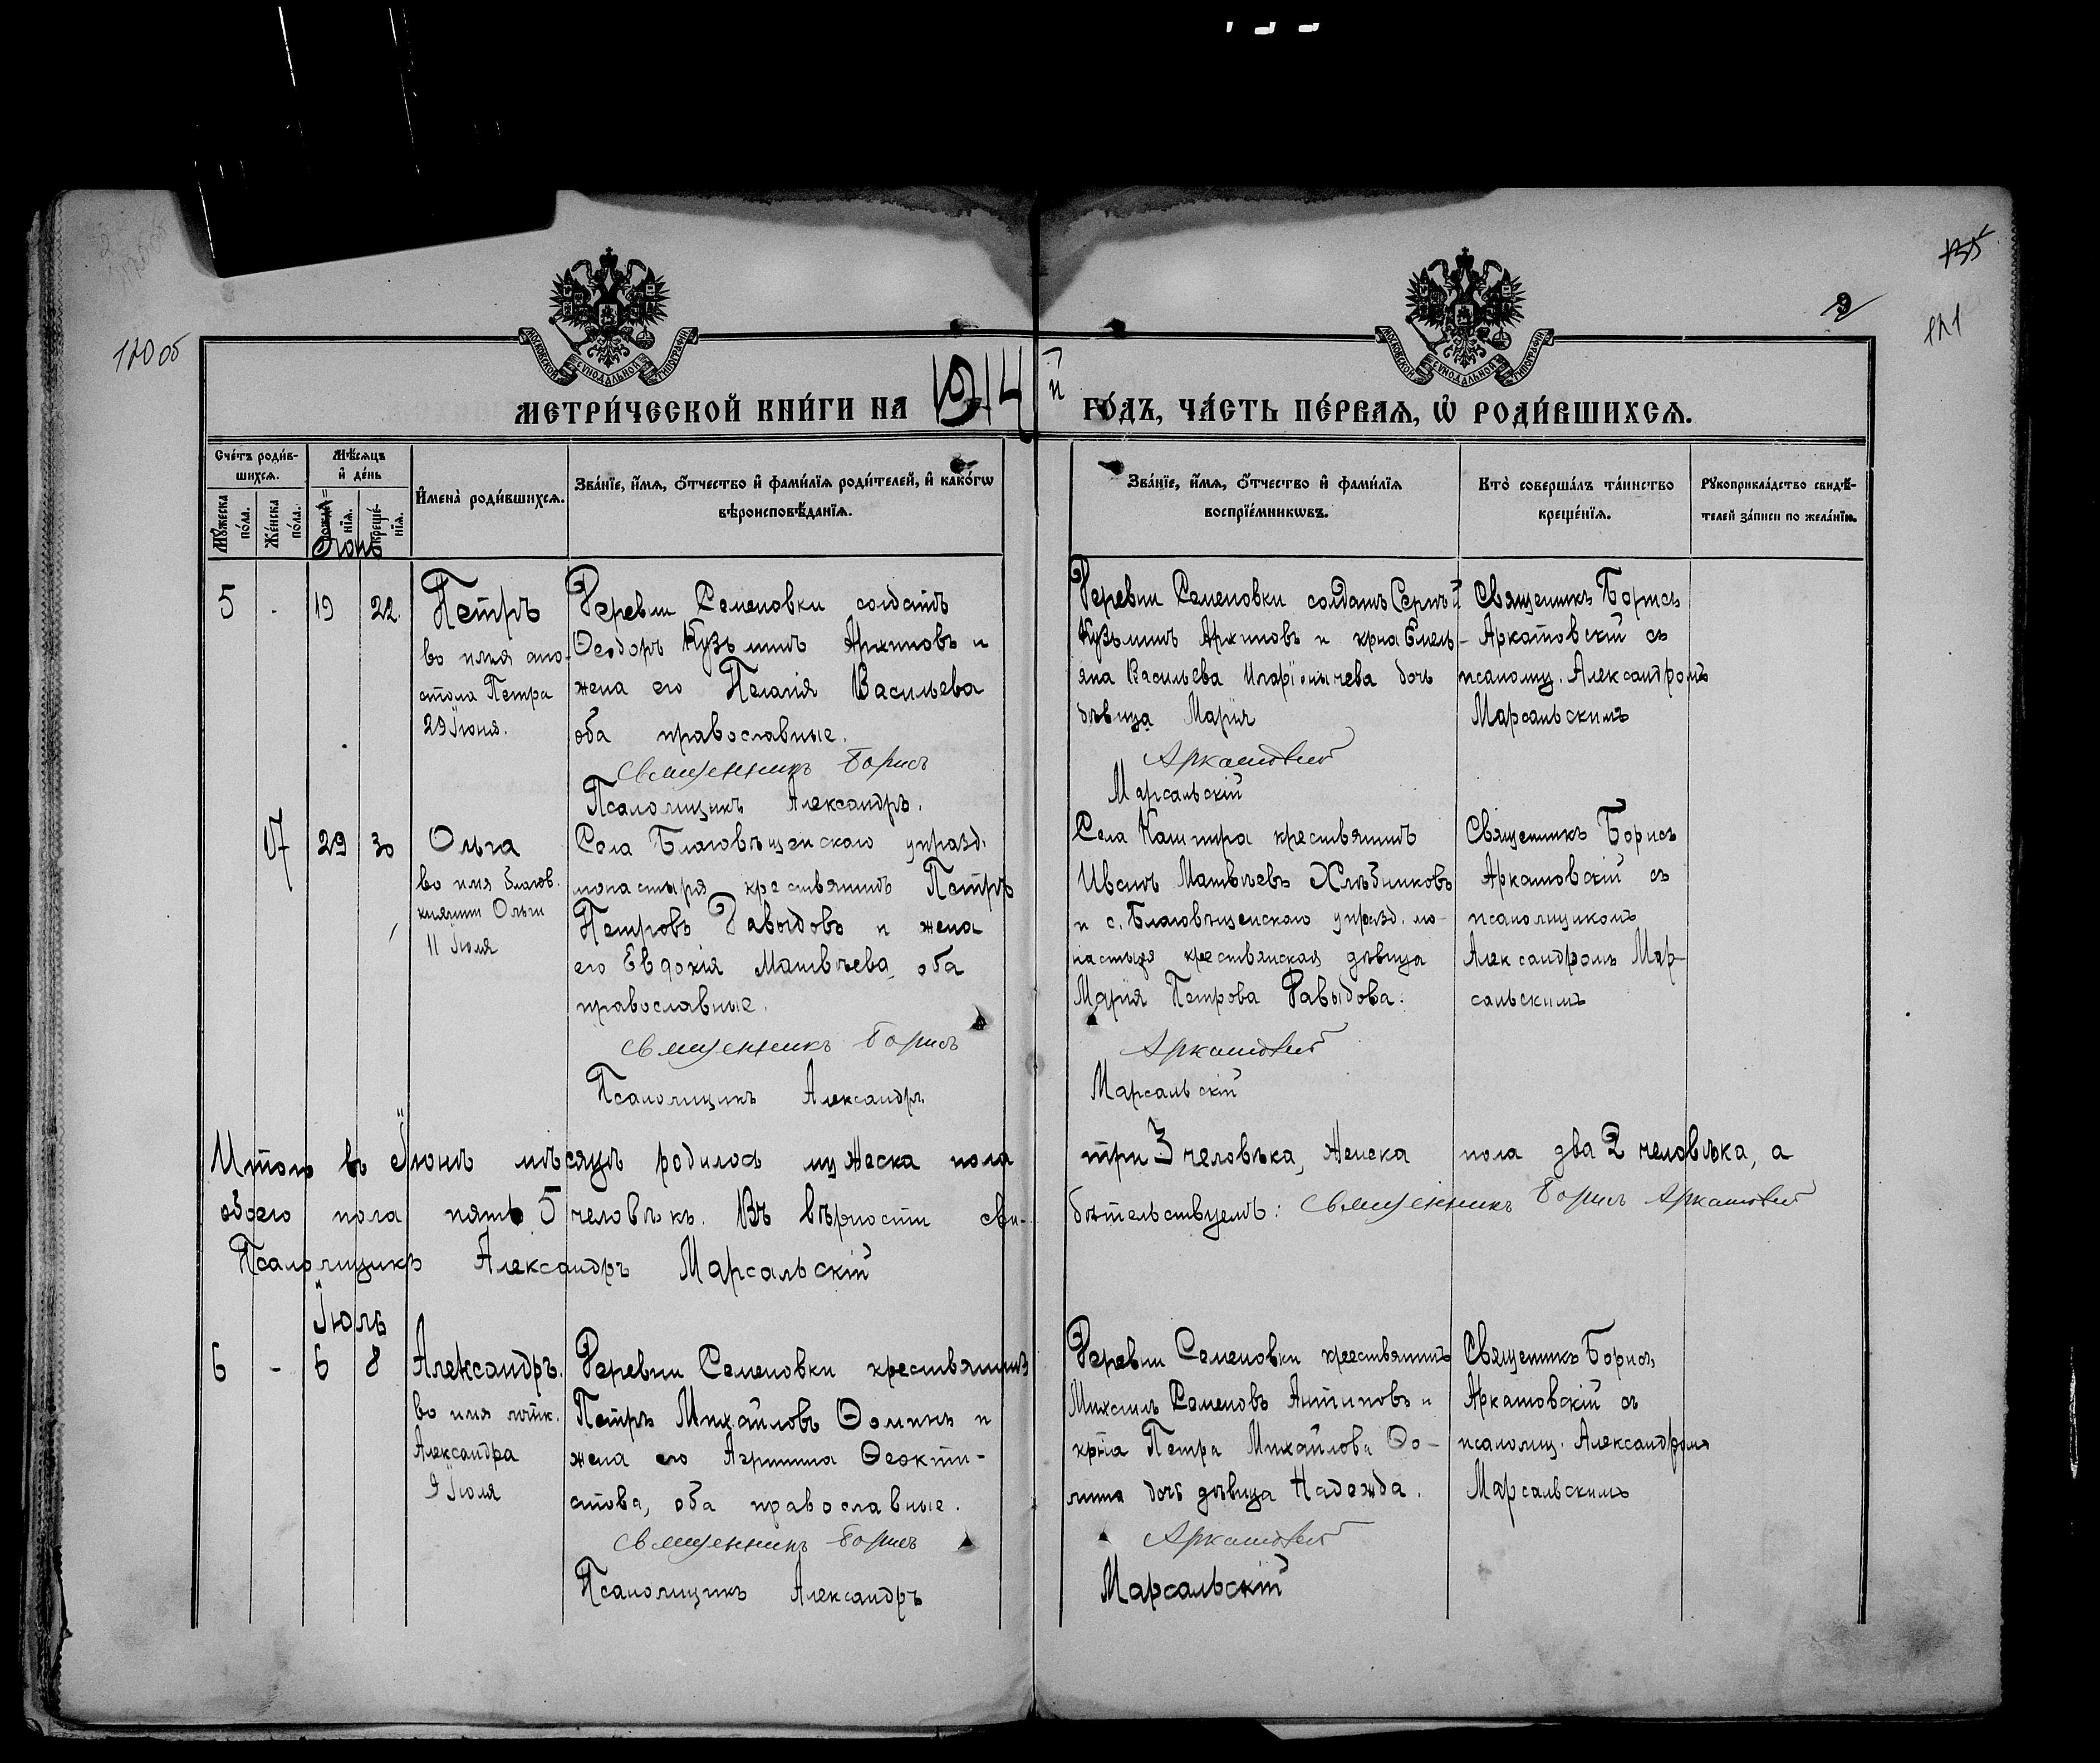 135
9
121
120 об
МОСКОВСКОЙ СѴНОДАЛЬНОЙ ТИПОГРАФІИ
МОСКОВСКОЙ СѴНОДАЛЬНОЙ ТИПОГРАФІИ
МЕТРИ́ЧЕСКОЙ КНИ́ГИ НА 1914 й ГО́ДЪ, ЧА́СТЬ ПЕ́РВАѦ, Ѡ҆ РОДИ́ВШИХСѦ.
Сче́тъ роди́в-
шихсѧ.
Мѣ́сѧцъ
и҆ де́нь
Мꙋ́жеска
по́ла.
Же́нска
по́ла.
рожде́-
нїѧ.
креще́-
нїѧ.
И҆мена̀ роди́вшихсѧ.
Зва́нїе, и҆́мѧ, ѻ҆́тчество и҆ фами́лїѧ роди́телей, и҆ како́гѡ
вѣроисповѣ́данїѧ.
Зва́нїе, и҆́мѧ, ѻ҆́тчество и҆ фами́лїѧ
воспрїе́мникѡвъ.
Кто̀ соверша́лъ та́инство
креще́нїѧ.
Рꙋкоприкла́дство свидѣ́-
телей за́писи по жела́нїю.
Іюнь
5 - 19 22.
Петръ
во имя апо-
стола Петра
29 Іюня.
Деревни Семеновки солдатъ
Ѳеодоръ Кузьминъ Архиповъ и
жена его Пелагія Васильева
оба православные.
Священникъ Борисъ
Псаломщикъ Александръ.
Деревни Семеновки солдатъ Сергѣй
Кузьминъ Архиповъ и кр-на Емель-
яна Васильева Иларіонычева дочь
дѣвица Марія
Аркатовскій
Марсальскій
Священникъ Борисъ
Аркатовскій съ
псаломщ. Александромъ
Марсальскимъ
17 29 30
Ольга
во имя благов.
княгини Ольги
11 Іюля
Села Благовѣщенскаго упразд.
монастыря крестьянинъ Петръ
Петровъ Давыдовъ и жена
его Евдокія Матвѣева, оба
православные.
Священникъ Борисъ
Псаломщикъ Александръ
Села Кашпира крестьянинъ
Иванъ Матвѣевъ Хлѣбниковъ
и с. Благовѣщенскаго упразд. мо-
настыря крестьянская дѣвица
Марія Петрова Давыдова.
Аркатовскій
Марсальскій
Священникъ Борисъ
Аркатовскій съ
псаломщикомъ
Александромъ Мар-
сальскимъ
Итого въ Іюнѣ мѣсяцѣ родилось мужеска пола три 3 человѣка, женска пола два 2 человѣка, а
обоего пола пять 5 человѣкъ. Въ вѣрности сви- дѣтельствуемъ: Священникъ Борисъ Аркатовскій
Псаломщикъ Александръ Марсальскій
Іюль
6 - 6 8
Александръ.
во имя
Александра
9 Іюля
Деревни Семеновки крестьянинъ
Петръ Михайловъ Ѳоминъ и
жена его Агрипина Ѳеокти-
стова, оба православные.
Священникъ Борисъ
Псаломщикъ Александръ
Деревни Семеновки крестьянинъ
Михаилъ Семеновъ Антиповъ и
кр-на Петра Михайлова Ѳо-
мина дочь дѣвица Надежда.
Аркатовскій
Марсальскій
Священникъ Борисъ
Аркатовскій съ
псаломщ. Александромъ
Марсальскимъ